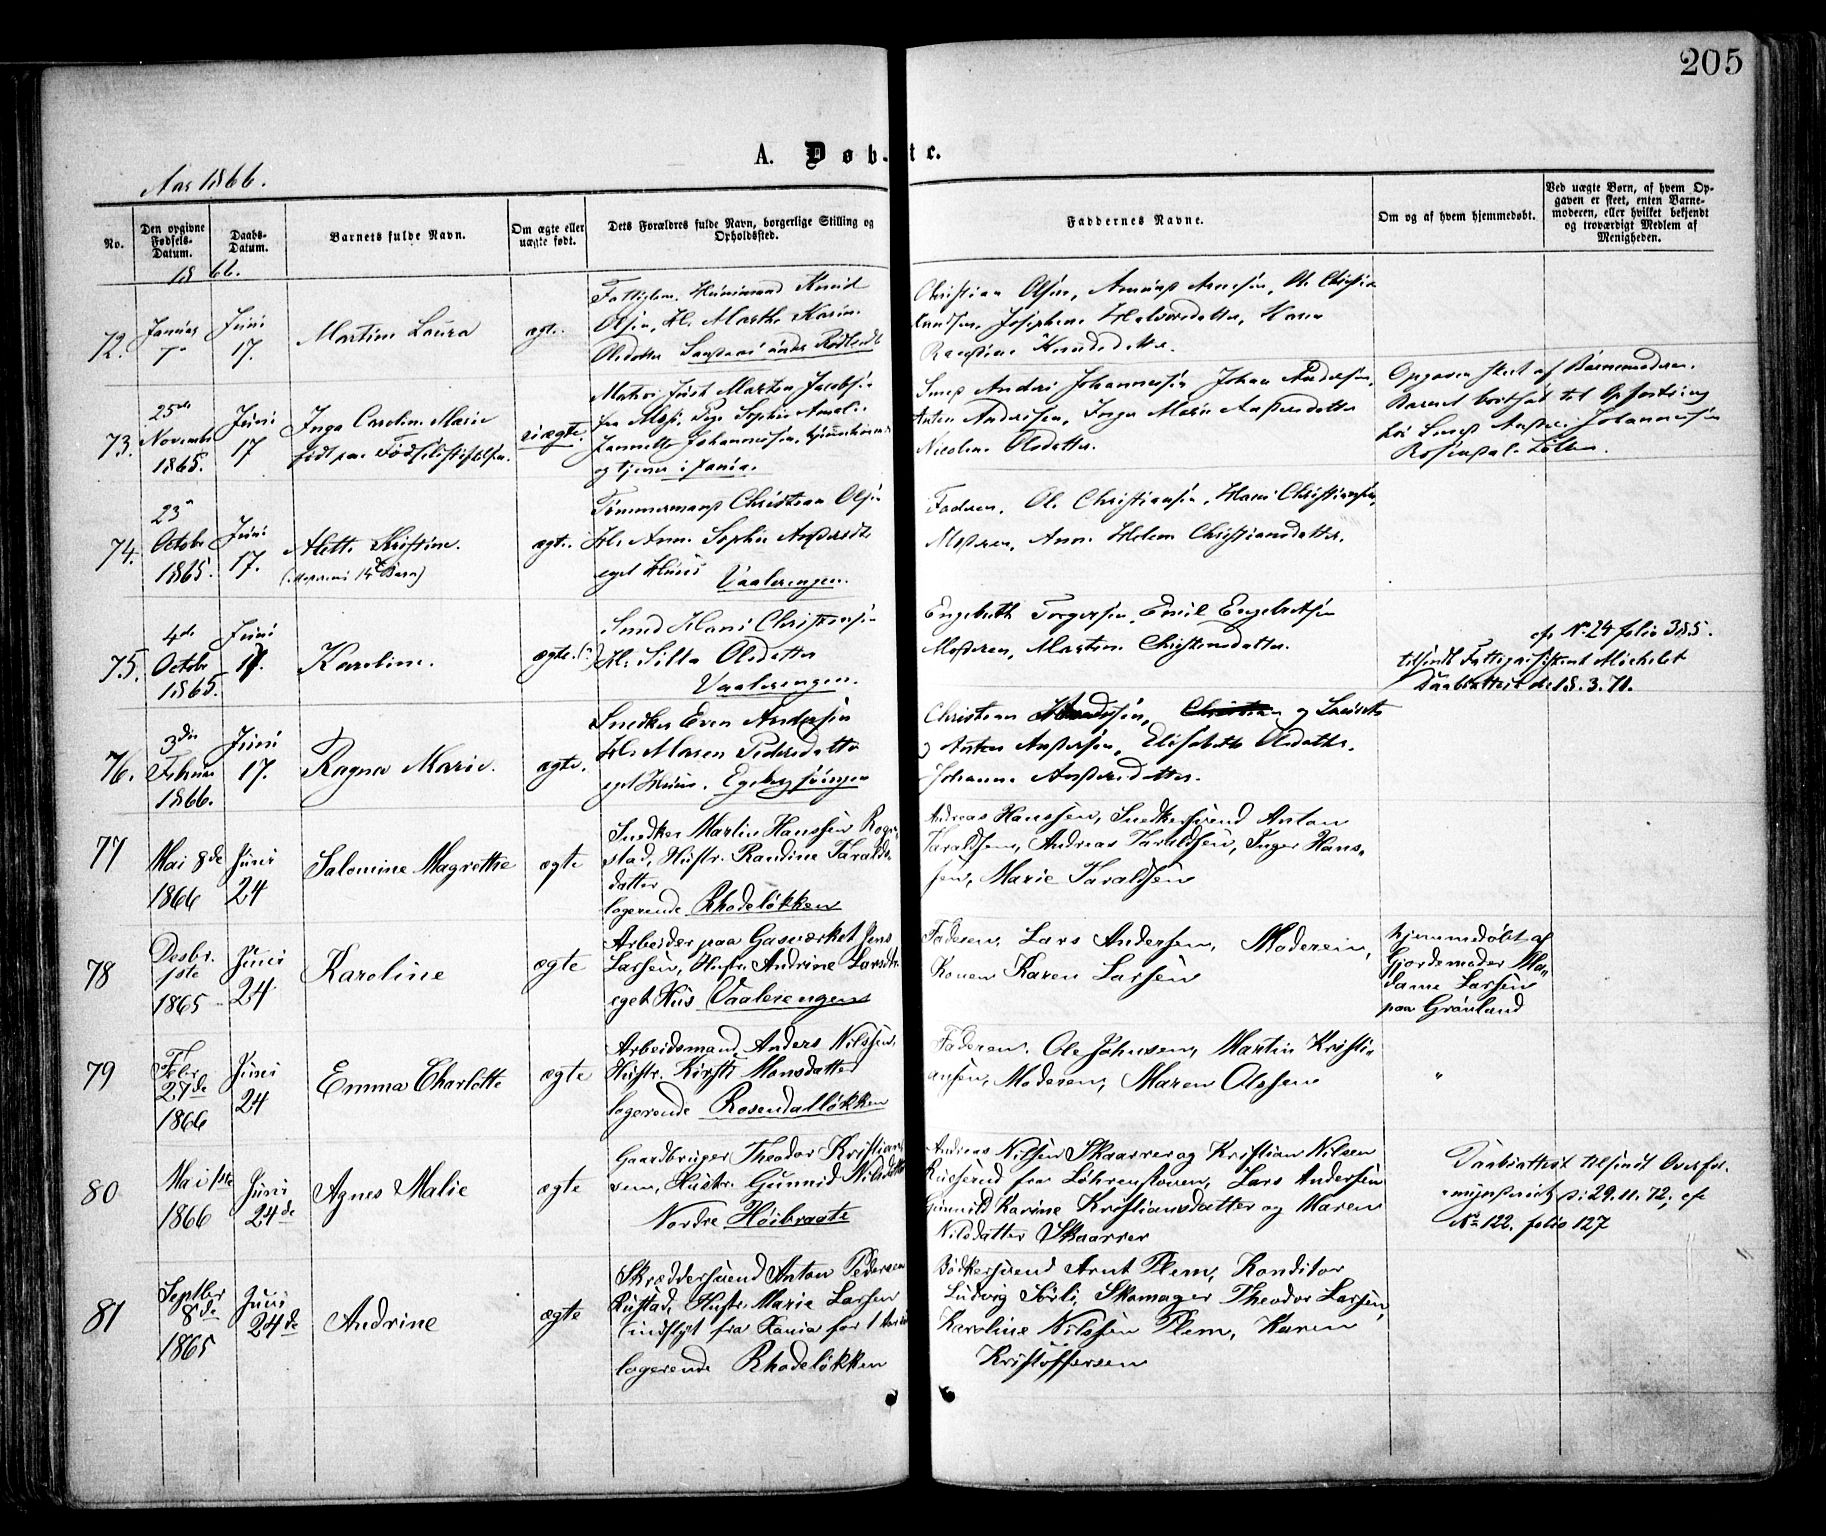 205
A. Døbte.
Aar 1866.
No.
Den opgivne Fødsels-Datum.
Daabs-Datum.
Barnets fulde Navn.
Om ægte eller uægte født.
Dets Forældres fulde Navn, borgerlige Stilling og Opholdssted.
Faddernes Navne.
Om og af hvem hjemmedøbt.
Ved uægte Børn, af hvem Opgaven er skeet, enten Barnemoderen, eller hvilket bekjendt og troværdigt Medlem af Menigheden.
1866.
72.
Januar
Juni
17.
Martine Laura
ægte.
Olsen, H. Marthe Karine
Christian Olsen,
Josephine Halvorsdatter, Hans
73.
25de
November
1865.
Juni
17
Inga Caroline Marie
født paa Fødselsstiftelsen.
uægte.
Martin Jacobsen
fra Moss, Pige Sophie Amalie
Jannette Johannessen, hjemmehørende
og tjener i Xania.
Johannessen Johan Andersen,
Anton Andersen, Inger Marie Andersdatter
Nicoline Olsdatter.
Opgaven skeet af Barnemoderen.
Barnet bortsat til Opfostring
hos Smed Anders Johannessen
74.
23
Octobr
1865.
Juni
17.
Alette Kristine.
(Moderens 14de Barn)
ægte.
Tømmermand Christian Olsen
H. Anne Sophie Andersdtr
eget Huus Vaalerengen.
Faderen, Ole Christiansen, Hans Christiansen,
Moderen, Anne Helene Christiansdatter.
75.
4de
Octobr
1865.
Juni
17.
Karoline.
ægte.
Smed Hans Christensen
H. Silla Olsdatter
Vaalerengen.
Engebreth Torgersen, Emil Engebretsen
Moderen, Martine Christensdatter.
cfr No 24 folio 385.
tilsendt Fattigassistent Michelet
Daabsattest de 18.3.71.
76.
3die
Februar
1866.
Juni
17.
Ragna Marie.
ægte.
Snedker Even Andersen
H. Maren Pedersdatter
eget Huus. Egebergsvingen
Christian Andersen,
Anton Andersen, Elisabeth Olsdatter.
Johanne Andersdatter.
77
Mai 8de
1866
Juni
24
Salomine Magrethe
ægte
Snedker Martin Hanssen Rog-
stad, Hustr. Randine Haralds-
datter
logerende Rhodeløkken
Andreas Hanssen, Snedkersvend Anton
Haraldsen, Andreas Haraldsen, Inger Hans-
sen, Marie Haraldsen
78
Desbr.
1ste
1865
Juni
24
Karoline
ægte
Arbeider paa Gasværket Jens
Larsen, Hustr. Andrine Larsdtr.
eget Hus Vaalerengen
Faderen, Lars Andersen, Moderen,
Konen Karen Larsen
hjemmedøbt af
Gjordemoder Ma-
dame Larsen
paa Grønland
79
Febr
27de
1866
Juni
24
Emma Charlotte
ægte
Arbeidsmand Anders Nilssen,
Hustr. Kirsti Monsdatter
logerende Rosendalløkken
Faderen. Ole Johnsen, Martin Kristi-
ansen, Moderen, Maren Olssen
"
80
Mai 1ste
1866
Juni
24de
Agnes Malie
ægte
Gaardbruger Theodor Kristian-
sen, Hustr. Gunnild Nilsdatter
Nordre Høibraate
Andreas Nilsen Skaarrer og Kristian Nilsen
fra Løhrenskoven, Lars Andersen
Gunnild Karine Kristiansdatter og Maren
Nilsdatter Skaarrer
Daabsattest tilsendt Overfor-
mynderiet d: 29.11.72, cfr
No 122. folio 127
81
Septbr
8de
1865
Juni
24de
Andrine
ægte
Skræddersvend Anton Pedersen
Rustad, Hustr. Marie Larsen
indflyt fra Xania for 1
logerende Rhodeløkken
Bødkersvend Arnt Plem, Konditor
Ludvig Sørli, Skomager Theodor Larsen,
Karoline Nilssen Plem, Karen
Kristoffersen